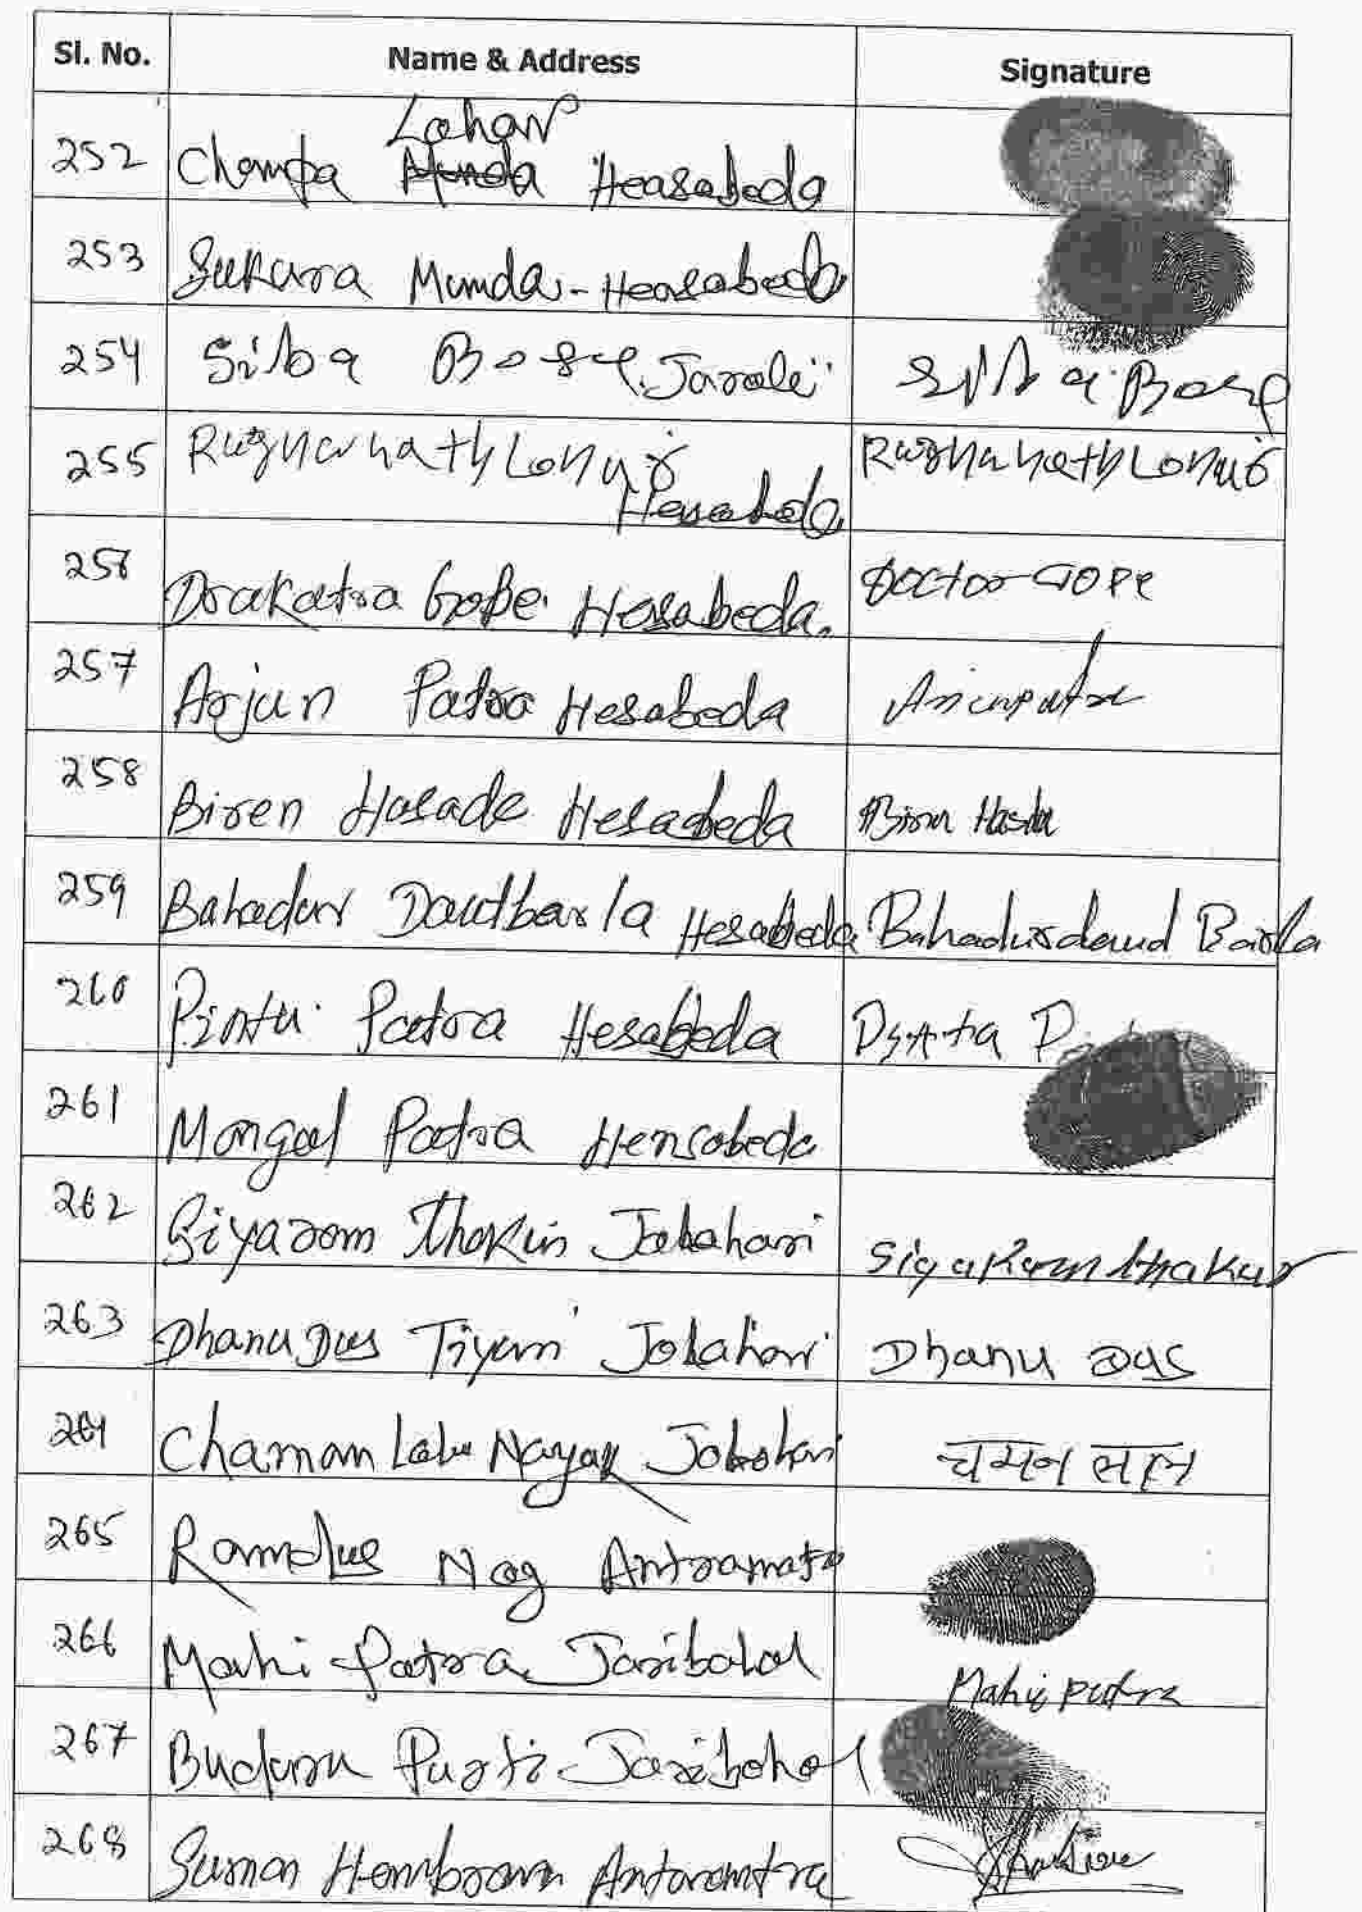 Sl. No. Name & Address Signature
Lohar
252 Champa Munda Heasabeda
253 Sukura Munda - Heasabeda
254 Siba Bose Jarali Siba Bose
255 Rugnanath Lohuro Rugnanath Lohuro
Hesabeda
256 Drakatra Gope. Hesabeda. Doctor Gope
257 Arjun Patra Hesabeda
258 Biren Hasade Hesabeda Biren Hasda
259 Bahadur Daudbarla Hesabeda Bahadurdaud Barla
260 Pintu Patra Hesabeda
261 Mongal Patra Hensabeda
262 Siyaram Thakur Jobahari Siyaram thakur
263 Dhanu Das Tiyari Jobahari Dhanu Das
264 Chaman Lalu Nayak Jobahari चमन लाल
265 Ramdas Nag Antaramatra
266 Mahi Patra Jaribahal Mahi patra
267 Budaru Purti - Jaribahal
268 Suman Hembrom Antaramtra